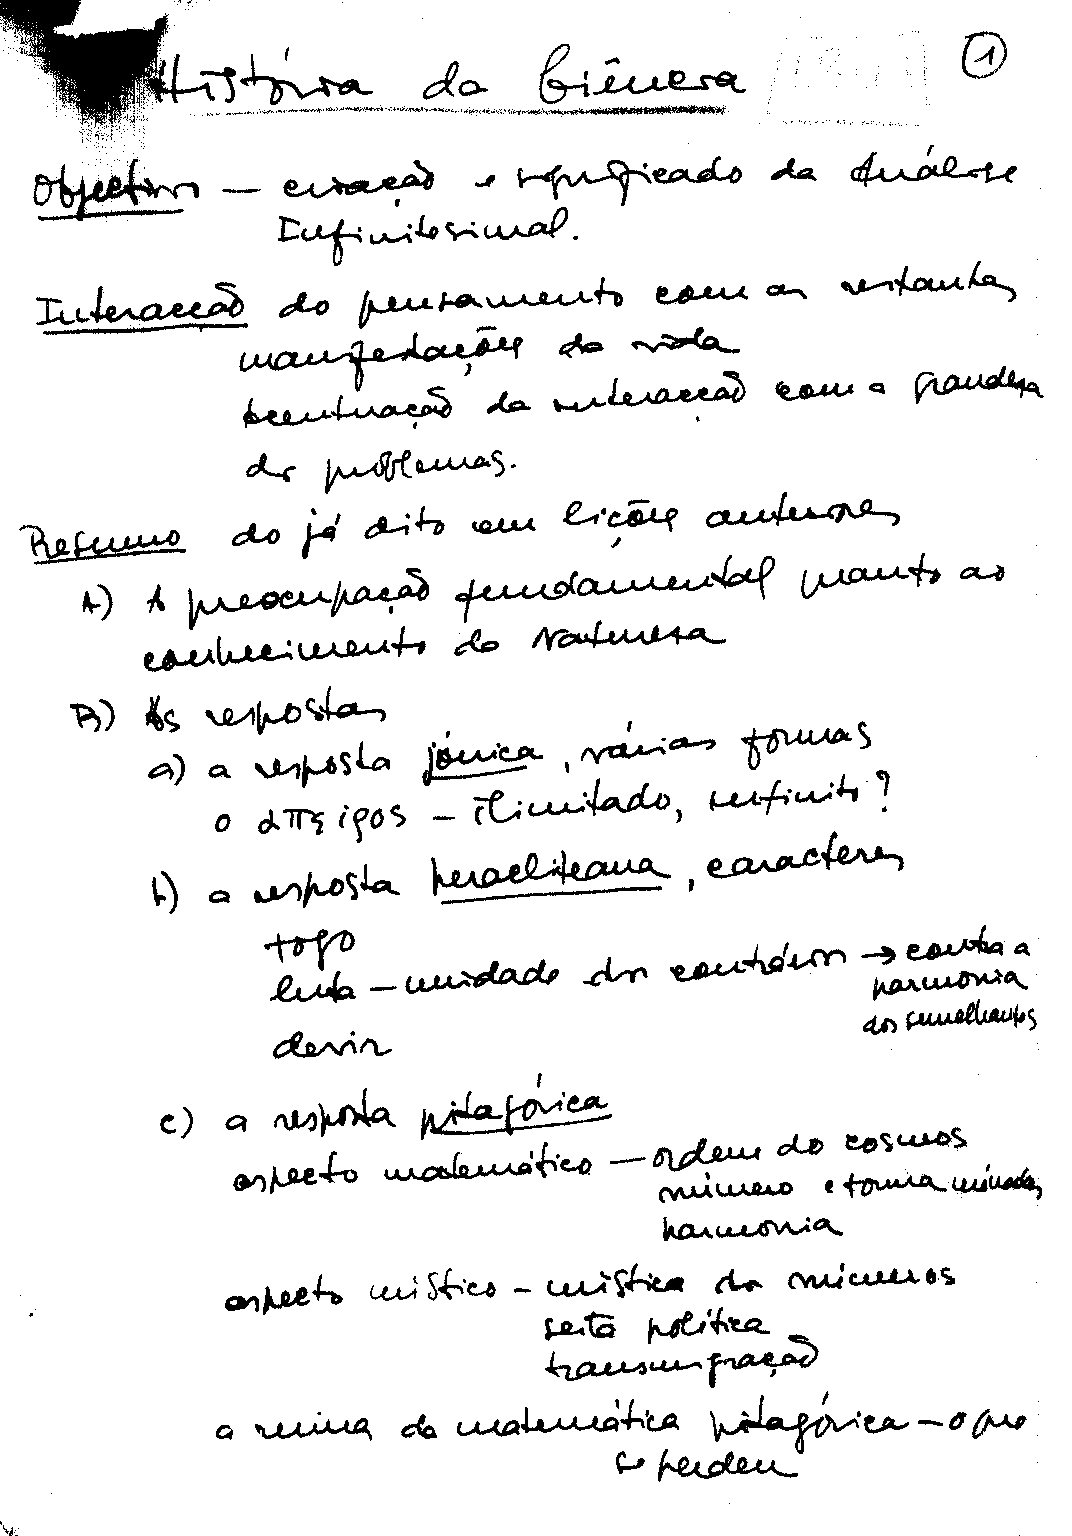 História da Ciência
1
Objectivos — criação e significado da Análise
Infinitesimal.
Interacção do pensamento com as restantes
manifestações da vida
acentuação da interacção com a grandeza
dos problemas.
Resumo do já dito em lições anteriores
A) A preocupação fundamental quanto ao
conhecimento da Natureza
B) As respostas
a) a resposta jónica, várias formas
o ἄπειρος — ilimitado, infinito?
b) a resposta heracliteana, caracteres
fogo
luta — unidade dos contrários → contra a
harmonia
dos semelhantes
devir
c) a resposta pitagórica
aspecto matemático — ordem do cosmos
número e forma
harmonia
aspecto místico — mística dos números
seita política
transmigração
a ruina da matemática pitagórica — o que
se perdeu